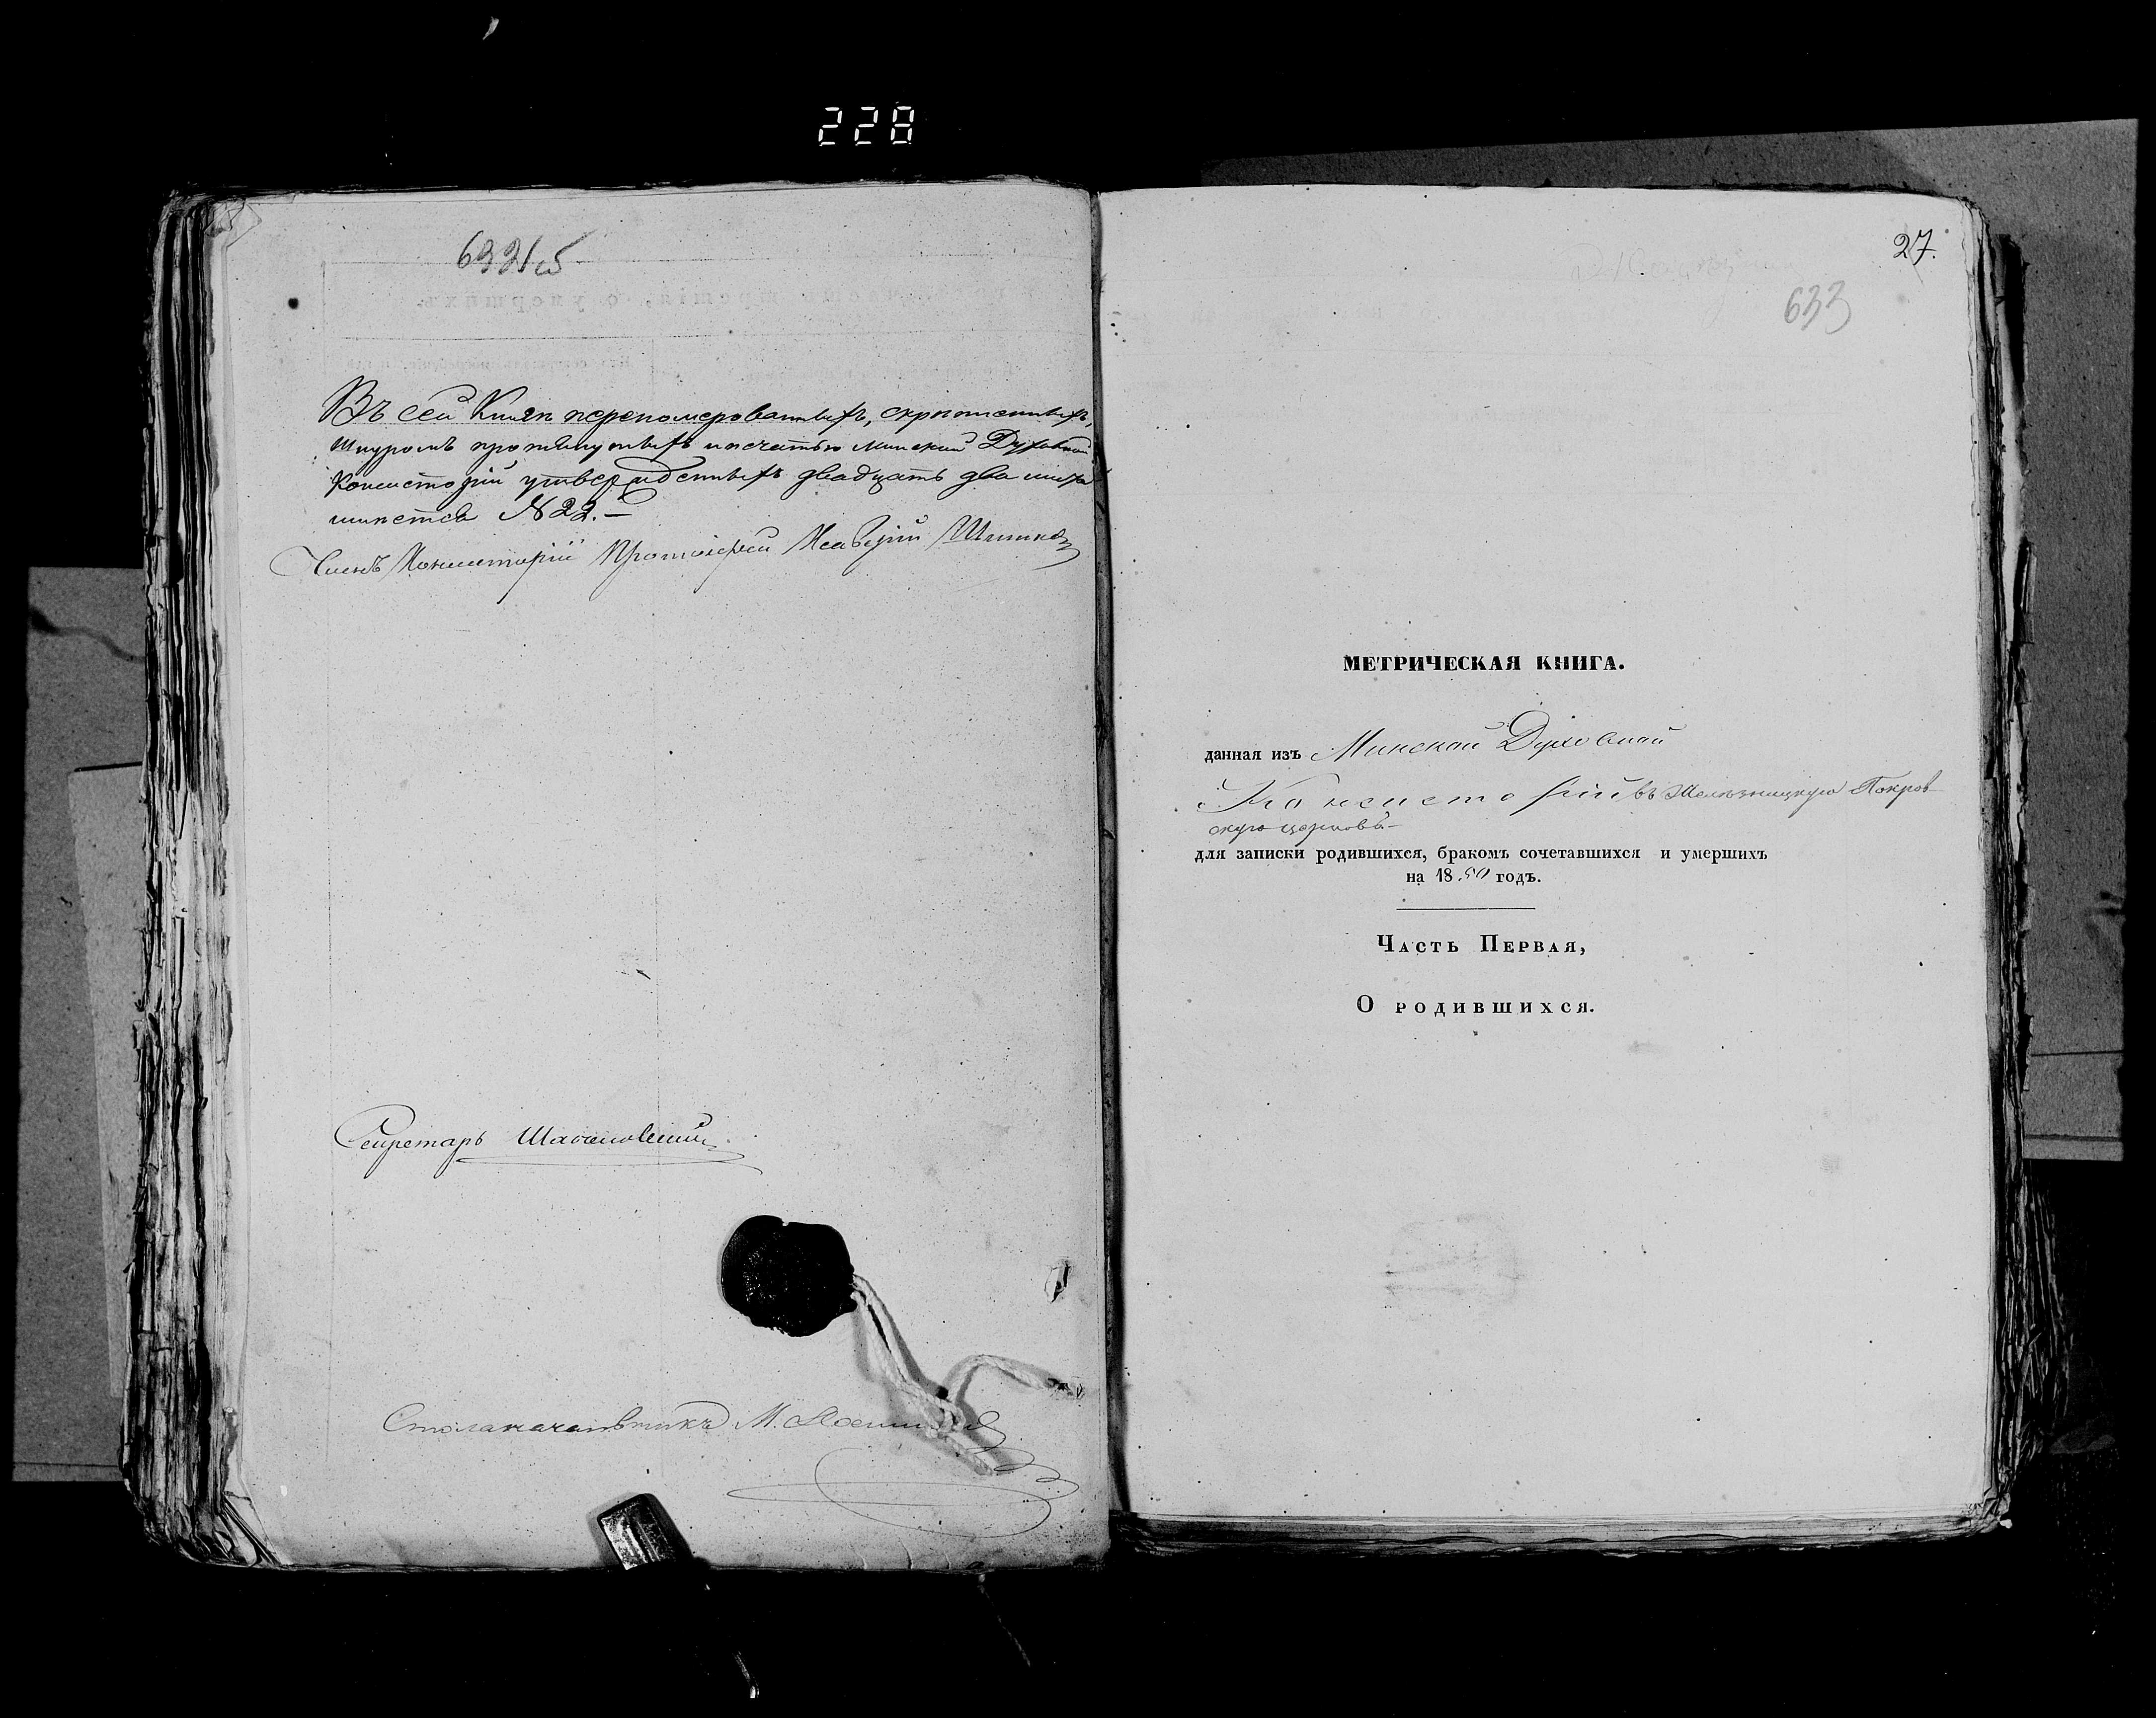 228
632об
Въ сей Книгѣ перепомерованныхъ, скрѣпленныхъ,
Шнуромъ протянутыхъ и печатью Минской Духовной
Консисторіи утвержденныхъ двадцать два
листа № 22. —
Членъ Консисторіи Протоіерей
Секретарь
Столоначальникъ М.
27.
633
МЕТРИЧЕСКАЯ КНИГА.
данная изъ Минской Духовной
Консисторіи въ Желѣзницкую Покров-
скую церковь —
для записки родившихся, бракомъ сочетавшихся и умершихъ
на 1850 годъ.
Часть Первая,
О родившихся.